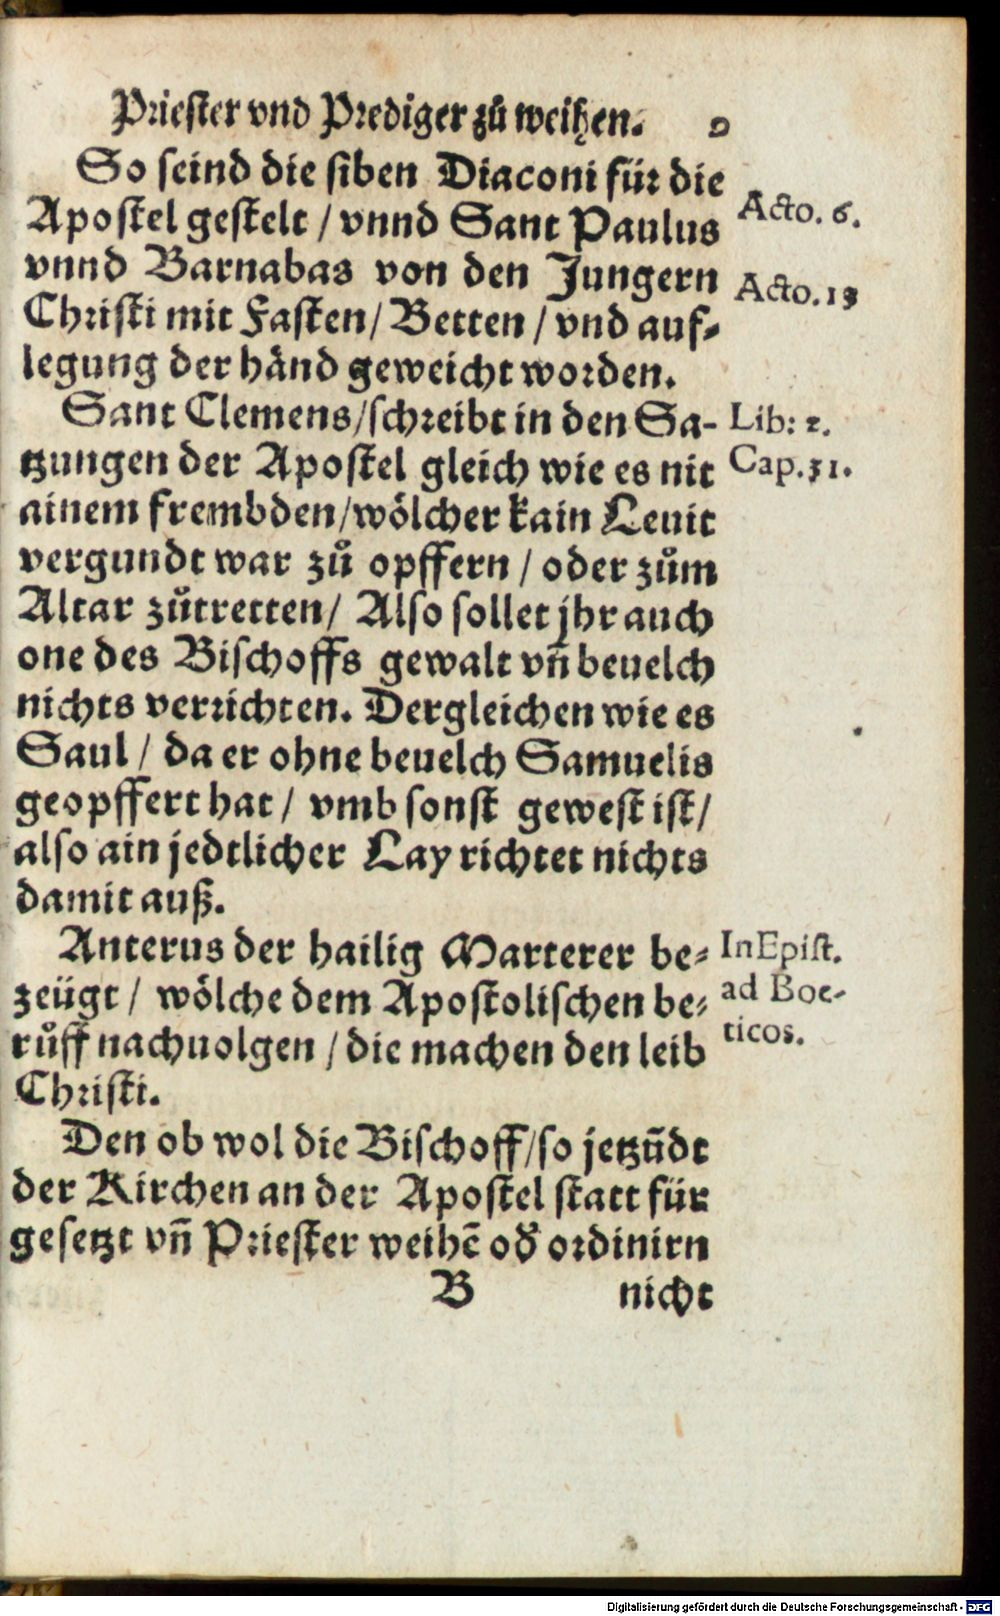 Priester vnd Prediger zů weihen.
So seind die siben Diaconi für die
Apostel gestelt / vnnd Sant Paulus
Acto. 6.
vnnd Barnabas von den Jungern
Acto. 13
Christi mit Fasten / Betten / vnd auf⸗
legung der händ geweicht worden.
Sant Clemens / schreibt in den Sa-
Lib: 2.
tzungen der Apostel gleich wie es nit
Cap. 31.
ainem frembden / wölcher kain Leuit
vergundt war zů opffern / oder zům
Altar zůtretten / Also sollet jhr auch
one des Bischoffs gewalt vñ beuelch
nichts verrichten. Dergleichen wie es
Saul / da er ohne beuelch Samuelis
geopffert hat / vmb sonst gewest ist /
also ain jedtlicher Lay richtet nichts
damit auß.
Anterus der hailig Marterer be⸗
In Epist.
zeügt / wölche dem Apostolischen be⸗
ad Boe-
růff nachuolgen / die machen den leib
ticos.
Christi.
Den ob wol die Bischoff / so jetzũdt
der Kirchen an der Apostel statt für
gesetzt vñ Priester weihẽ od̕ ordinirn
B nicht
Digitalisierung gefördert durch die Deutsche Forschungsgemeinschaft - DFG